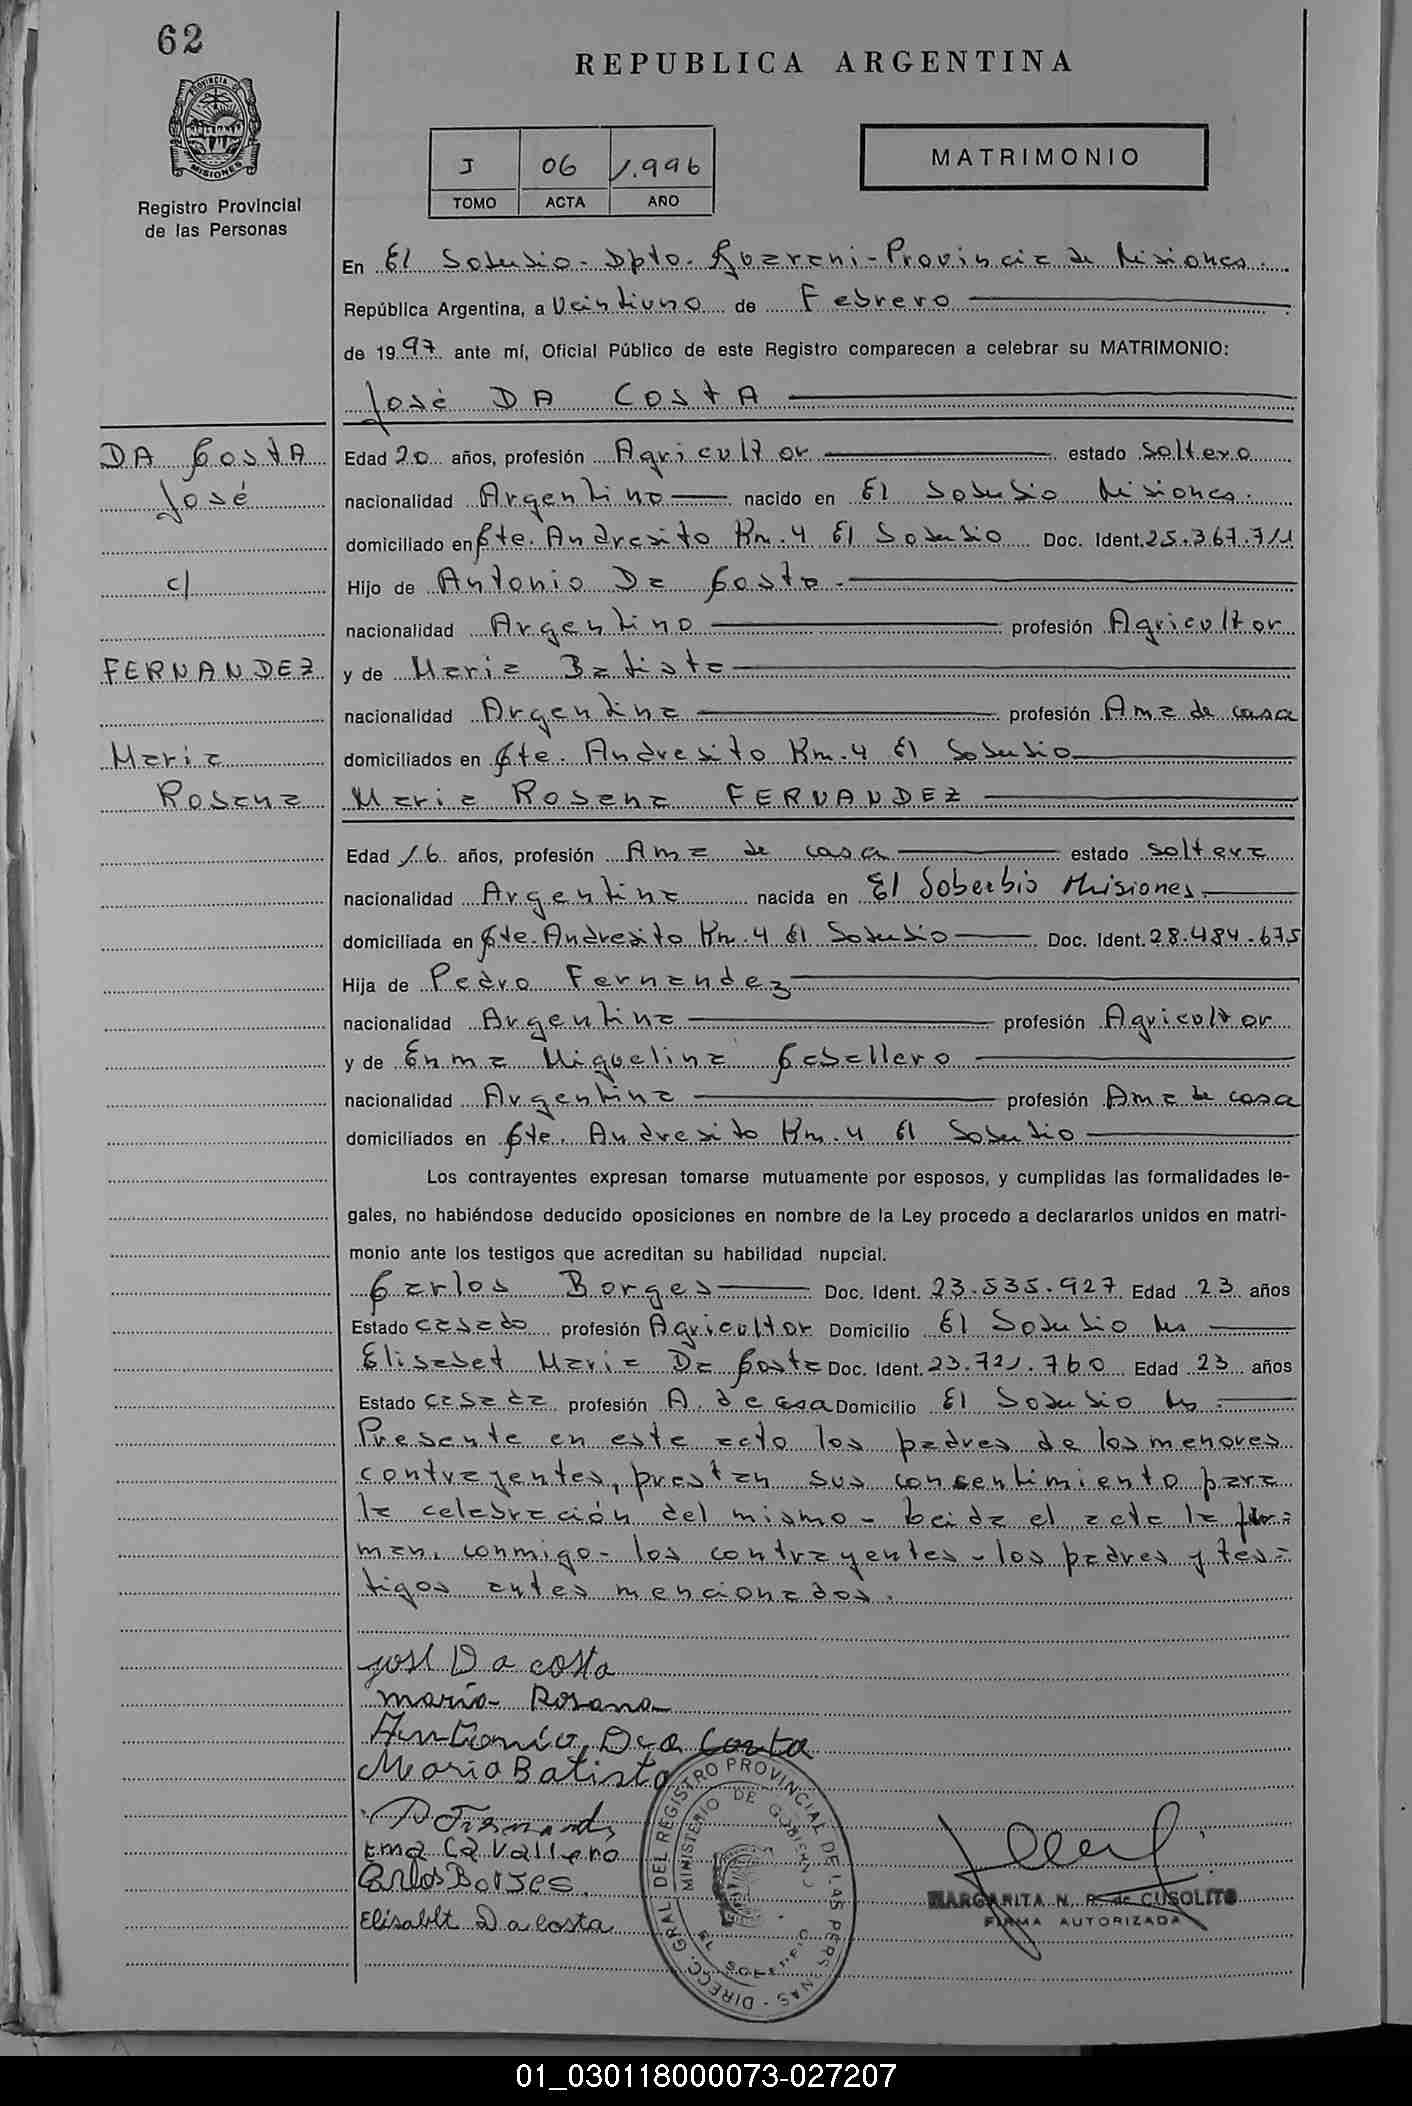 62
REPUBLICA ARGENTINA
PROVINCIA DE
MISIONES
Registro Provincial
de las Personas
I 06 1.996
TOMO ACTA AÑO
MATRIMONIO
En El Soberbio - Dpto. Guarani - Provincia de Misiones.
República Argentina, a Veintiuno de Febrero
de 1997 ante mí, Oficial Público de este Registro comparecen a celebrar su MATRIMONIO:
José DA COSTA
DA COSTA
José
c/
FERNANDEZ
Maria
Rosana
Edad 20 años, profesión Agricultor estado soltero
nacionalidad Argentino nacido en El Soberbio Misiones.
domiciliado en Cte. Andresito Km. 4 El Soberbio Doc. Ident. 25.367.711
Hijo de Antonio Da Costa.
nacionalidad Argentino profesión Agricultor
y de Maria Batista
nacionalidad Argentina profesión Ama de casa
domiciliados en Cte. Andresito Km. 4 El Soberbio
Maria Rosana FERNANDEZ
Edad 16 años, profesión Ama de casa estado soltera
nacionalidad Argentina nacida en El Soberbio Misiones.
domiciliada en Cte. Andresito Km. 4 El Soberbio Doc. Ident. 28.484.675
Hija de Pedro Fernandez
nacionalidad Argentina profesión Agricultor
y de Enma Miguelina Caballero
nacionalidad Argentina profesión Ama de casa
domiciliados en Cte. Andresito Km. 4 El Soberbio
Los contrayentes expresan tomarse mutuamente por esposos, y cumplidas las formalidades le-
gales, no habiéndose deducido oposiciones en nombre de la Ley procedo a declararlos unidos en matri-
monio ante los testigos que acreditan su habilidad nupcial.
Carlos Borges Doc. Ident. 23.535.927 Edad 23 años
Estado casado profesión Agricultor Domicilio El Soberbio Ms
Elisabet Maria Da Costa Doc. Ident. 23.721.760 Edad 23 años
Estado casada profesión A. de casa Domicilio El Soberbio Ms.
Presente en este acto los padres de los menores
contrayentes, prestan sus consentimiento para
la celebración del mismo - Leida el acta la fir=
man, conmigo - los contrayentes - los padres y tes=
tigos antes mencionados.
José Da costa
maria Rosana
Antonio Da Costa
Maria Batista
P Fernandz
Ema Cavallero
Carlos Borges
Elisabet Da costa
DIRECC. GRAL. DEL REGISTRO PROVINCIAL DE LAS PERSONAS
MINISTERIO DE GOBIERNO
EL SOBERBIO
MARGARITA N. R. de CUSOLITO
FIRMA AUTORIZADA
01_030118000073-027207